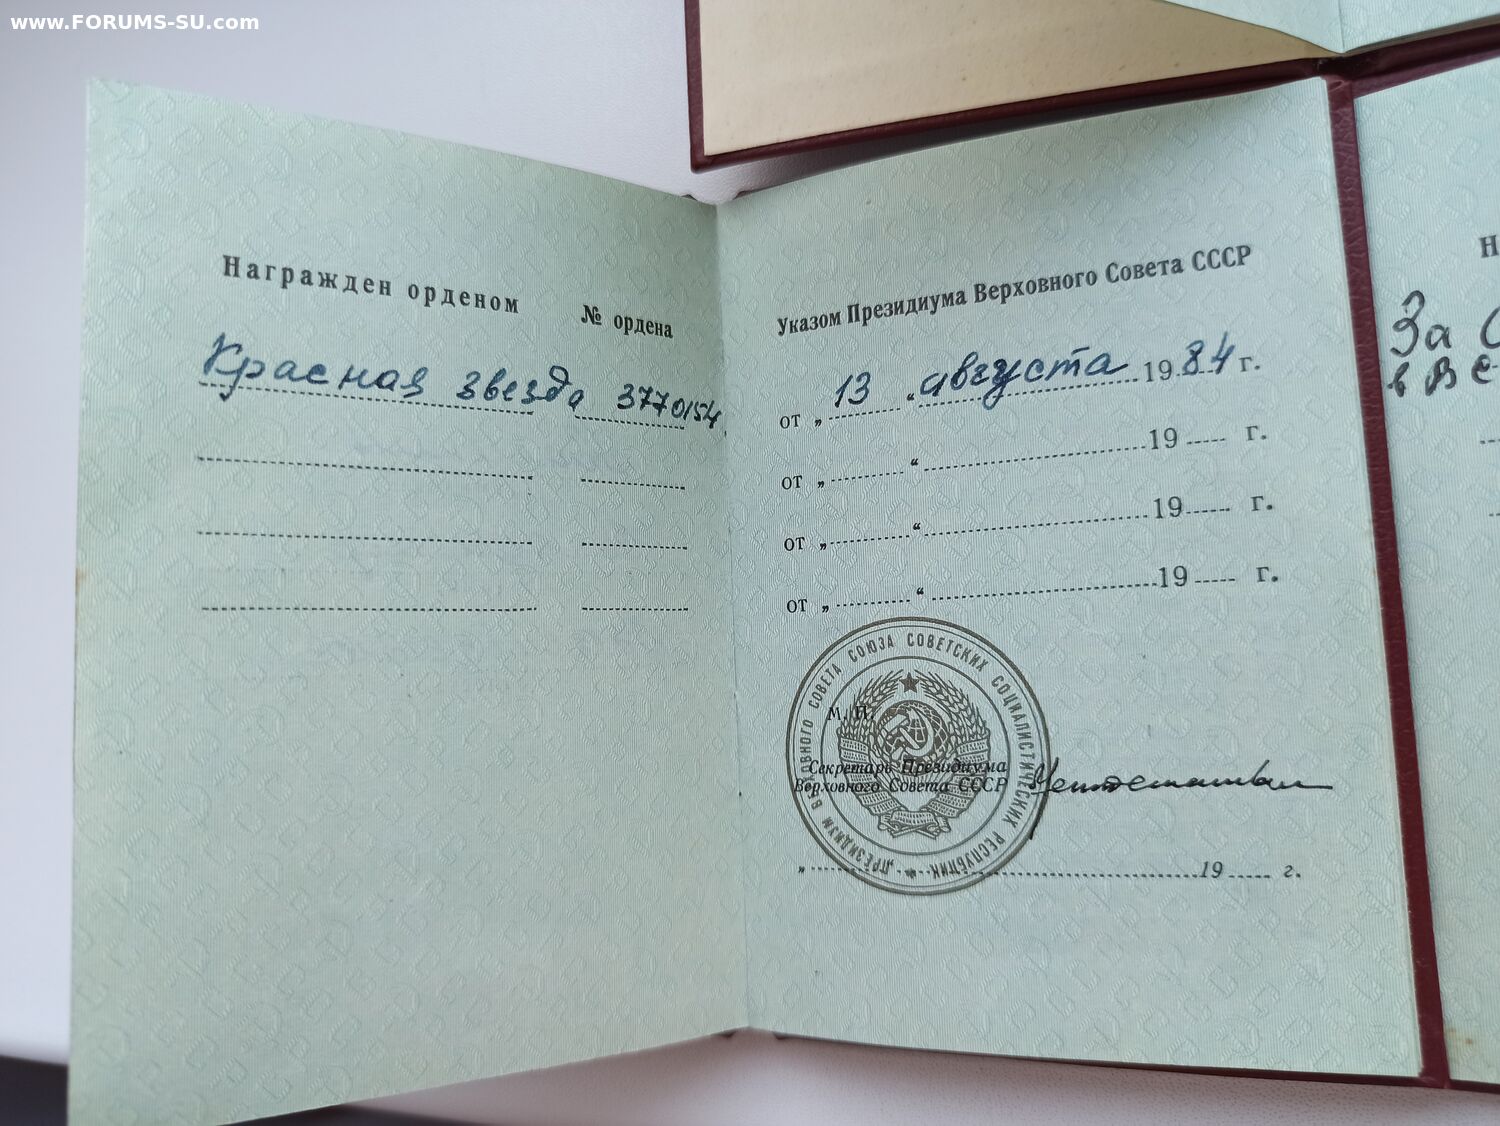 www.FORUMS-SU.com
Награжден орденом № ордена
Красная звезда 3770154
Указом Президиума Верховного Совета СССР
от „ 13 “ августа 1984 г.
от „ “ 19 г.
от „ “ 19 г.
от „ “ 19 г.
ПРЕЗИДИУМ ВЕРХОВНОГО СОВЕТА СОЮЗА СОВЕТСКИХ СОЦИАЛИСТИЧЕСКИХ РЕСПУБЛИК
М. П.
Секретарь Президиума
Верховного Совета СССР
„ 19 г.
Н
За С
в В С